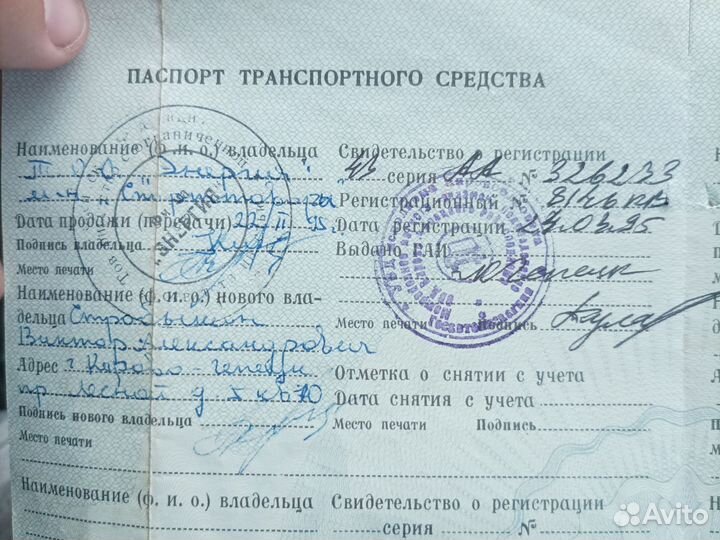 ПАСПОРТ ТРАНСПОРТНОГО СРЕДСТВА
Наименование (ф. и. о.) владельца
ТОО "Энергия"
Дата продажи (передачи) 22. II 95.
Подпись владельца
Место печати
Наименование (ф. и. о.) нового вла-
дельца Страбыкин
Виктор Александрович
Адрес г. Кирово-Чепецк
пр Лесной д 5 кв 10
Подпись нового владельца
Место печати
Наименование (ф. и. о.) владельца
Свидетельство о регистрации
серия АА № 326233
Регистрационный №
Дата регистрации 24.03.95
Выдано ГАИ
Место печати Подпись
Отметка о снятии с учета
Дата снятия с учета
Место печати Подпись
Свидетельство о регистрации
серия №
"ЭНЕРГИЯ"
Avito